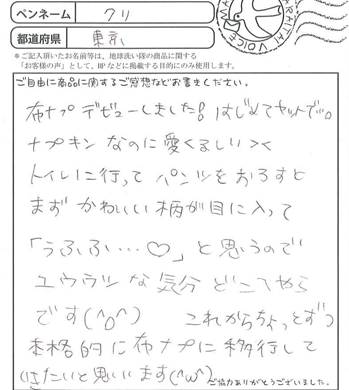 ペンネーム クリ
都道府県 東京
＊ご記入頂いたお名前等は、地球洗い隊の商品に関する
「お客様の声」として、HPなどに掲載する目的にのみ使用します。
VOICE
ご自由に商品に関するご感想などお書きください。
布ナプデビューしました! はじめてセットで…。
ナプキンなのに愛くるしい＞＜
トイレに行ってパンツをおろすと
まずかわいい柄が目に入って
「うふふ…♡」と思うので
ユウウツな気分どこへやら
です(^o^) これからちょっとずつ
本格的に布ナプに移行して
いきたいと思います(^ω^)
ご協力ありがとうございました。